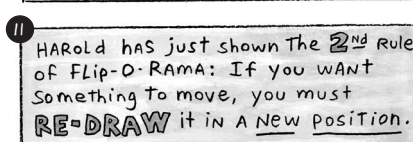 11
HAROLD HAS just shown The 2ND Rule
of FLIP-O-RAMA: If you WANT
Something to move, you must
RE-DRAW it IN A New Position.